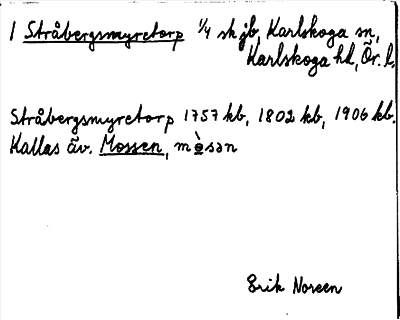 1 Stråbergsmyretorp 1/4 sk jb, Karlskoga sn,
Karlskoga hd, Ör. l.
Stråbergsmyretorp 1757 kb, 1802 kb, 1906 kb.
Kallas äv. Mossen, mò̱sən
Erik Noreen